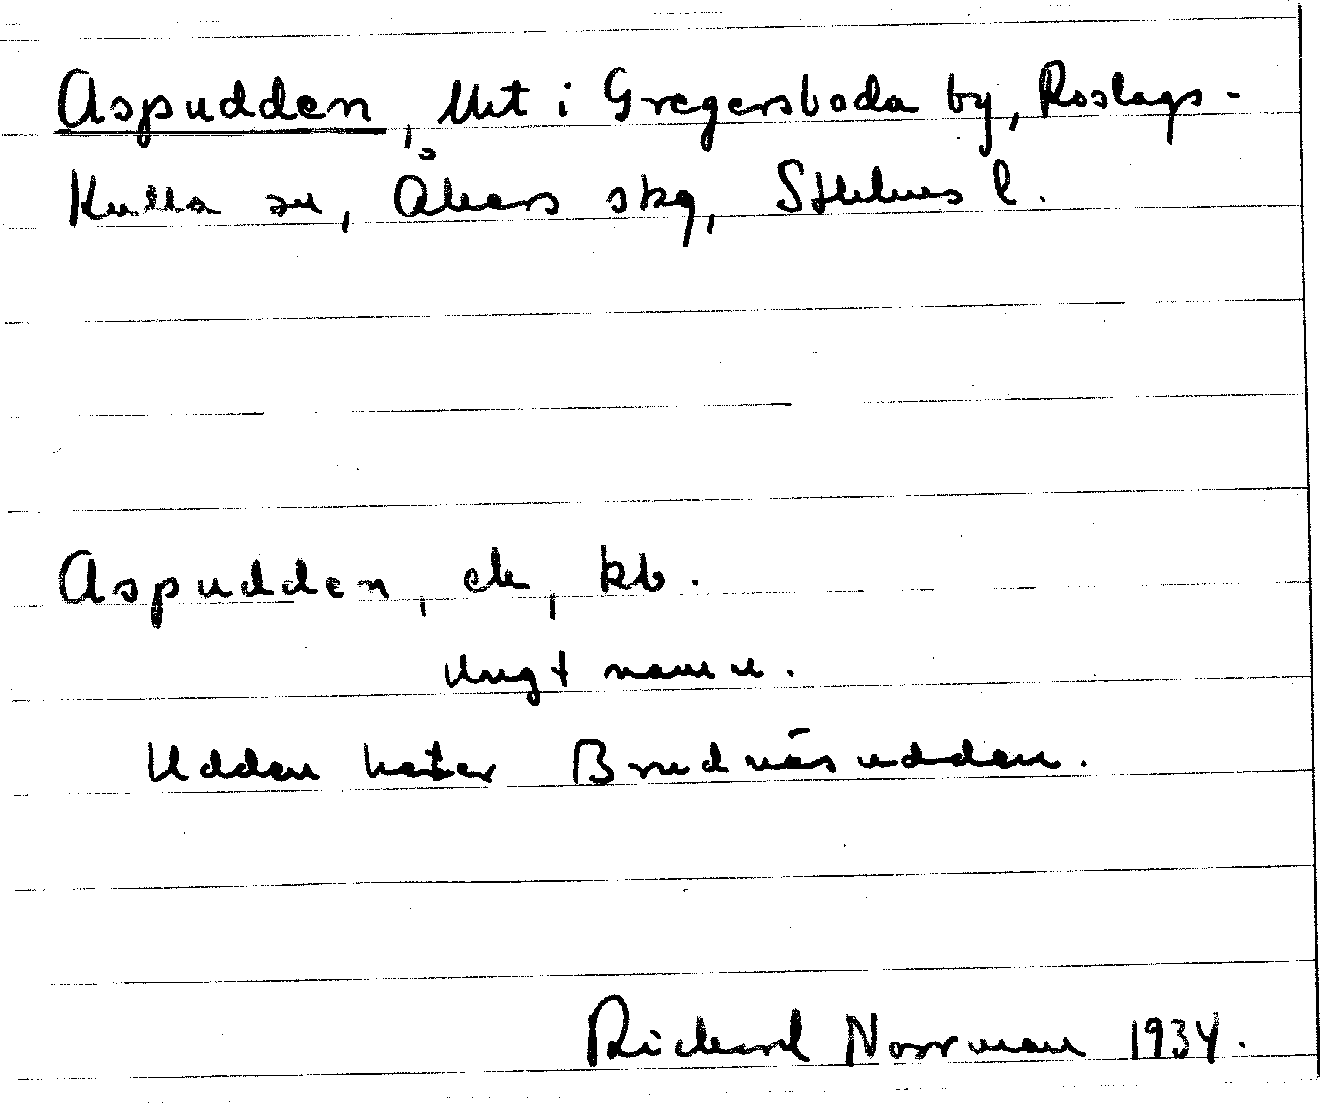 Aspudden, Uht i Gregersboda by, Roslags-
Kulla sn, Åkers skg, Sthlms l.
Aspudden, ek, kb.
Ungt namn.
Udden heter Brudnäsudden.
Rickard Norrman 1934.